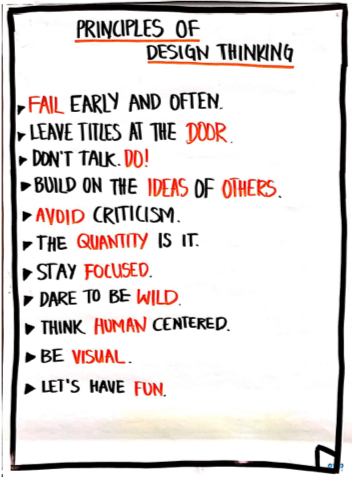 PRINCIPLES OF
DESIGN THINKING
FAIL EARLY AND OFTEN.
LEAVE TITLES AT THE DOOR.
DON'T TALK. DO!
BUILD ON THE IDEAS OF OTHERS.
AVOID CRITICISM.
THE QUANTITY IS IT.
STAY FOCUSED.
DARE TO BE WILD.
THINK HUMAN CENTERED.
BE VISUAL.
LET'S HAVE FUN.